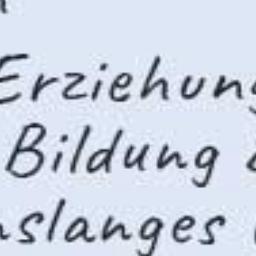 Erziehung
Bildung &
nslanges